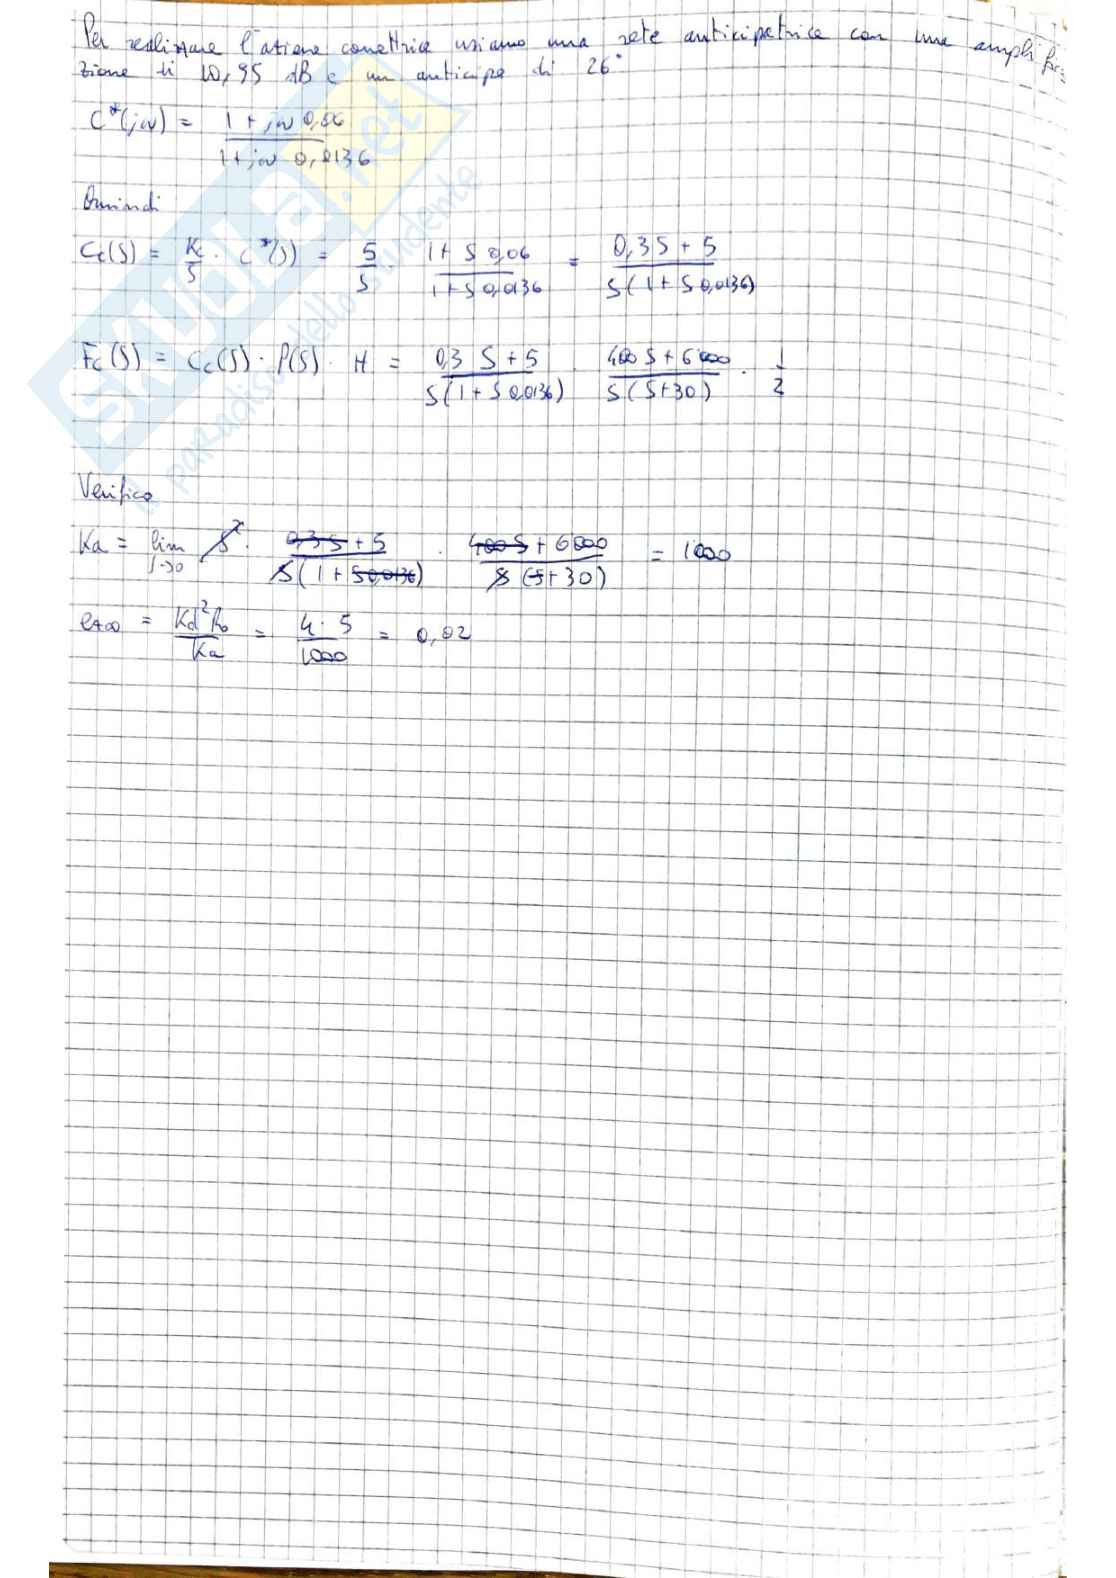 Per realizzare l'azione correttrice usiamo una rete anticipatrice con una amplifica
zione di 10,95 dB e un anticipo di 26°
C*(jω) = (1 + jω 0,06) / (1 + jω 0,0136)
Quindi
Cc(S) = Kc/S · C*(S) = 5/S · (1 + S 0,06) / (1 + S 0,0136) = (0,3 S + 5) / (S(1 + S 0,0136))
Fc(S) = Cc(S) · P(S) · H = (0,3 S + 5) / (S(1 + S 0,0136)) (400 S + 6000) / (S(S+30)) · 1/2
Verifica
Ka = lim S→0 S² · (0,3 S + 5) / (S(1 + S 0,0136)) · (400 S + 6000) / (S(S+30)) = 1000
e+∞ = Kd² R0 / Ka = 4 · 5 / 1000 = 0,02
SKUOLA.net
il paradiso dello studente